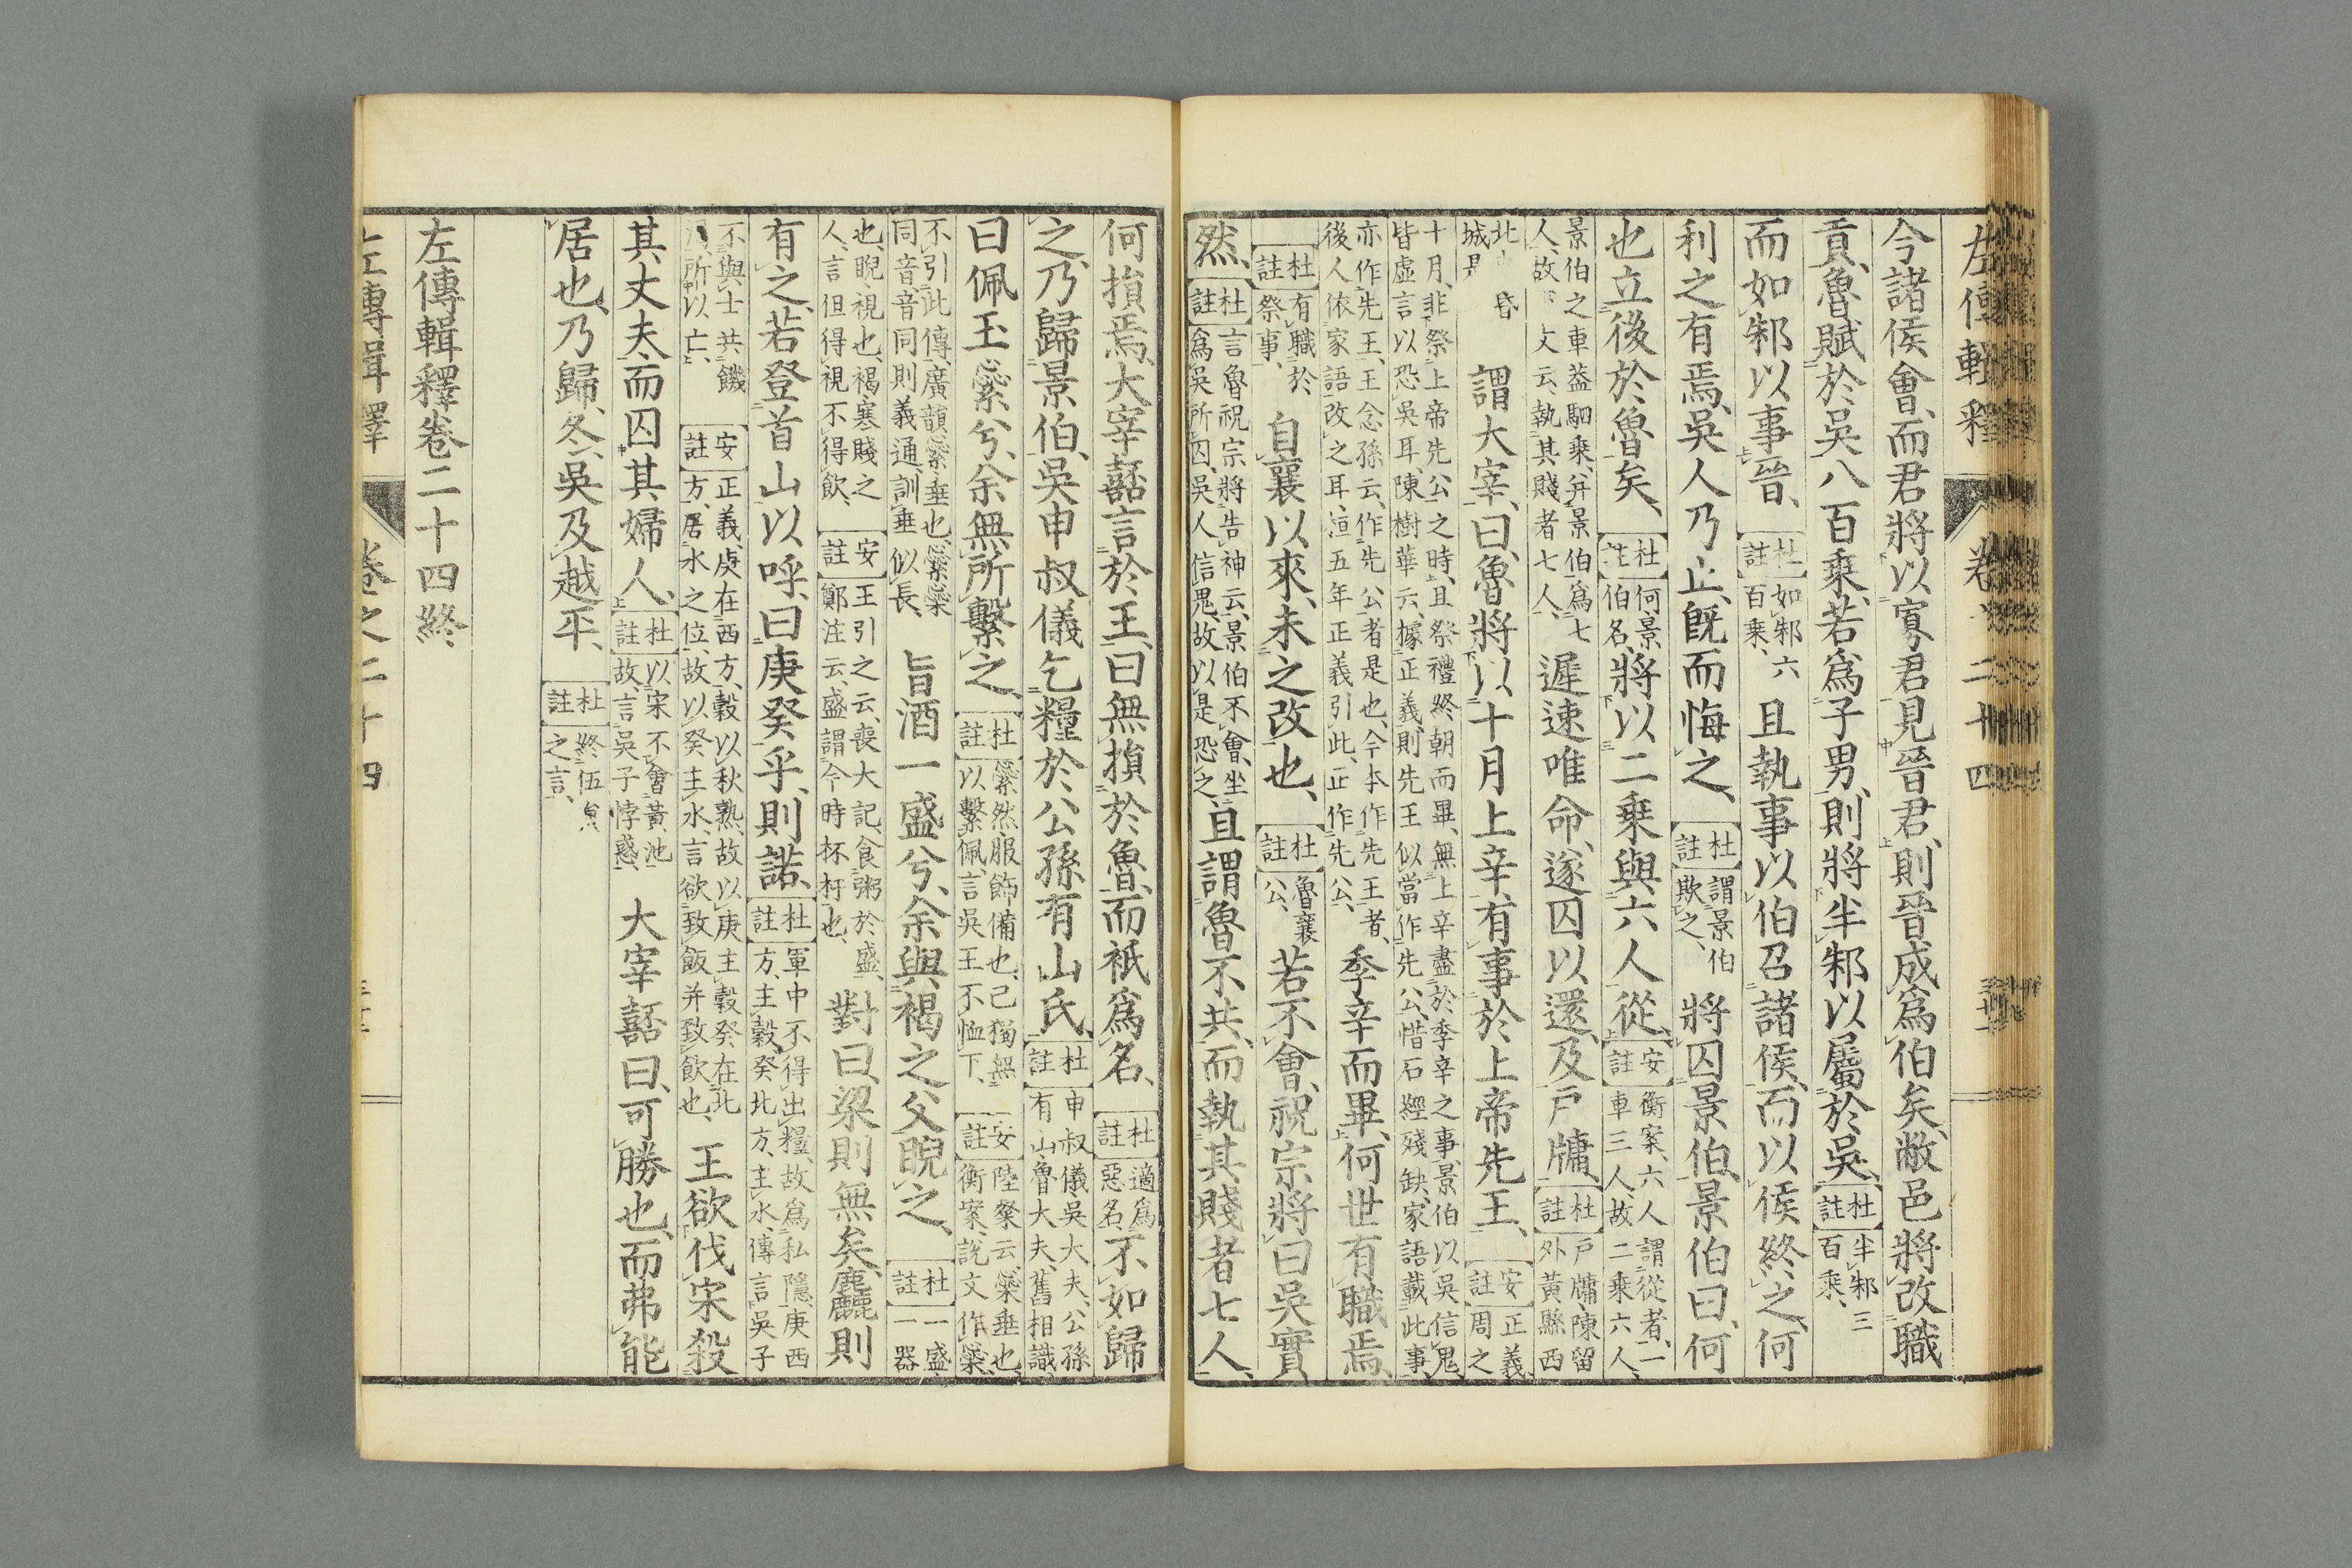 左傳輯釋 卷 二十四
今諸侯會、而君將以寡君見晉君、則晉成爲伯矣、敝邑將改職
貢、魯賦於吳八百乘、若爲子男、則將半邾以屬於吳、杜註半邾三百乘、
而如邾以事晉、杜註如邾六百乘、且執事以伯召諸侯、而以侯終之、何
利之有焉、吳人乃止、既而悔之、杜註謂景伯欺之、將囚景伯、景伯曰、何
也立後於魯矣、杜註何、景伯名、將以二乘與六人從、安註衡案、六人謂從者、一車三人、故二乘六人、
景伯之車蓋駟乘、并景伯爲七人、故下文云、執其賤者七人、遲速唯命、遂囚以還、及戶牖、杜註戶牖、陳留外黃縣西
北 昏城是 謂大宰、曰、魯將以十月上辛、有事於上帝先王、安註正義、周之
十月、非祭上帝先公之時、且祭禮終朝而畢、無上辛盡於季辛之事、景伯以吳信鬼、皆虛言以恐吳耳、陳樹華云、據正義、則先王似當作先公、惜石經殘缺、家語載此事、
亦作先王、王念孫云、作先公者是也、今本作先王者、後人依家語改之耳、洹五年正義引此、正作先公、季辛而畢、何世有職焉、
杜註有職於祭事、自襄以來、未之改也、杜註魯襄公、若不會、祝宗將曰吳實
然、杜註言魯祝宗將告神云、景伯不會、坐爲吳所囚、吳人信鬼、故以是恐之、且謂魯不共、而執其賤者七人、
何損焉、大宰嚭言於王、曰、無損於魯、而祇爲名、杜註適爲惡名、不如歸
之、乃歸景伯、吳申叔儀乞糧於公孫有山氏、杜註申叔儀、吳大夫、公孫有山、魯大夫、舊相識、
曰佩玉縈兮、余無所繫之、杜註縈然服飾備也、己獨無以繫佩、言吳王不恤下、安註陸粲云、縈垂也、衡案、說文作縈、
不引此傳、廣韻縈垂也、縈縈同音、音同則義通、訓垂似長、旨酒一盛兮、余與褐之父睨之、杜註一盛、一器
也、睨、視也、褐、寒賤之人、言但得視不得飲、安註王引之云、喪大記、食粥於盛、鄭注云、盛謂今時杯杅也、對曰、梁則無矣、麤則
有之、若登首山以呼、曰庚癸乎、則諾、杜註軍中不得出糧、故爲私隱、庚西方、主穀、癸北方、主水、傳言吳子
不與士共饑 所以亡、安註正義、庚在西方、穀以秋熟、故以庚主穀、癸在北方、居水之位、故以癸主水、言欲致飯并致飲也、王欲伐宋、殺
其丈夫、而囚其婦人、杜註以宋不會黃池故、言吳子悖惑、大宰嚭曰、可勝也、而弗能
居也、乃歸、冬、吳及越平、杜註終伍員之言、
左傳輯釋卷二十四終
左傳輯釋 卷之二十四